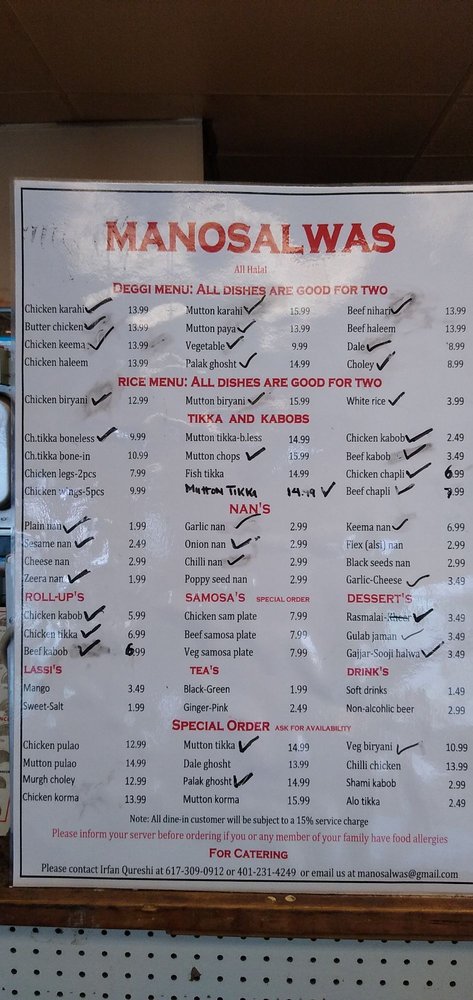 MANOSALWAS
All Halal
DEGGI MENU: ALL DISHES ARE GOOD FOR TWO
Chicken karahi 13.99 Mutton karahi 15.99 Beef nihari 13.99
Butter chicken 13.99 Mutton paya 13.99 Beef haleem 13.99
Chicken keema 13.99 Vegetable 9.99 Dale 8.99
Chicken haleem 13.99 Palak ghosht 14.99 Choley 8.99
RICE MENU: ALL DISHES ARE GOOD FOR TWO
Chicken biryani 12.99 Mutton biryani 15.99 White rice 3.99
TIKKA AND KABOBS
Ch.tikka boneless 9.99 Mutton tikka-b.less 14.99 Chicken kabob 2.49
Ch.tikka bone-in 10.99 Mutton chops 15.99 Beef kabob 3.49
Chicken legs-2pcs 7.99 Fish tikka 14.99 Chicken chapli 6.99
Chicken wings-5pcs 9.99 Mutton Tikka Beef chapli 7.99
NAN'S
Plain nan 1.99 Garlic nan 2.99 Keema nan 6.99
Sesame nan 2.49 Onion nan 2.99 Flex (alsi) nan 2.99
Cheese nan 2.99 Chilli nan 2.99 Black seeds nan 2.99
Zeera nan 1.99 Poppy seed nan 2.99 Garlic-Cheese 3.49
ROLL-UP'S SAMOSA'S SPECIAL ORDER DESSERT'S
Chicken kabob 5.99 Chicken sam plate 7.99 Rasmalai-Kheer 3.49
Chicken tikka 6.99 Beef samosa plate 7.99 Gulab jaman 3.49
Beef kabob 6.99 Veg samosa plate 7.99 Gajjar-Sooji halwa 3.49
LASSI'S TEA'S DRINK'S
Mango 3.49 Black-Green 1.99 Soft drinks 1.49
Sweet-Salt 1.99 Ginger-Pink 2.49 Non-alcohlic beer 2.99
SPECIAL ORDER ASK FOR AVAILABILITY
Chicken pulao 12.99 Mutton tikka 14.99 Veg biryani 10.99
Mutton pulao 14.99 Dale ghosht 13.99 Chilli chicken 13.99
Murgh choley 12.99 Palak ghosht 14.99 Shami kabob 2.99
Chicken korma 13.99 Mutton korma 15.99 Alo tikka 2.49
Note: All dine-in customer will be subject to a 15% service charge
Please inform your server before ordering if you or any member of your family have food allergies
FOR CATERING
Please contact Irfan Qureshi at 617-309-0912 or 401-231-4249 or email us at manosalwas@gmail.com